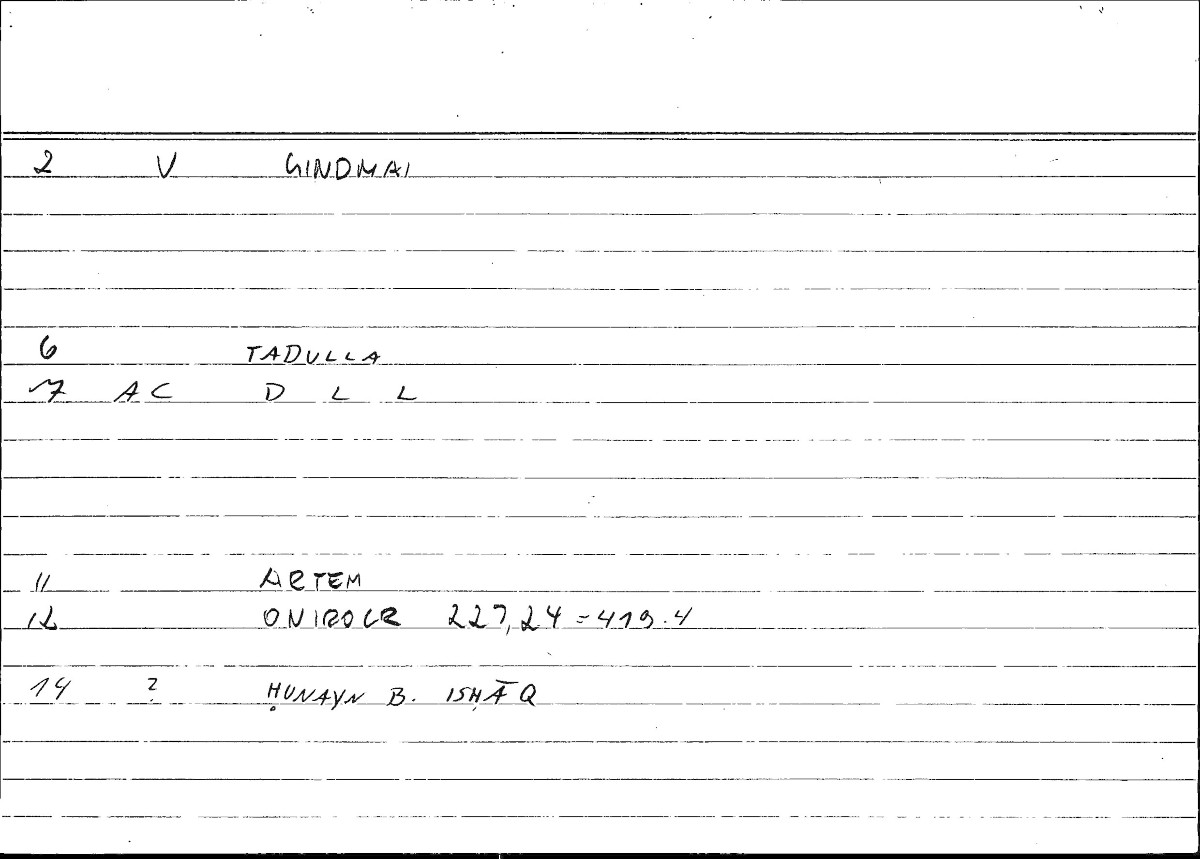 2 V GINDMAI
6 TADULLA
7 AC D L L
11 ARTEM
12 ONIROCR 227,24=419.4
14 ? ḤUNAYN B. ISḤĀQ